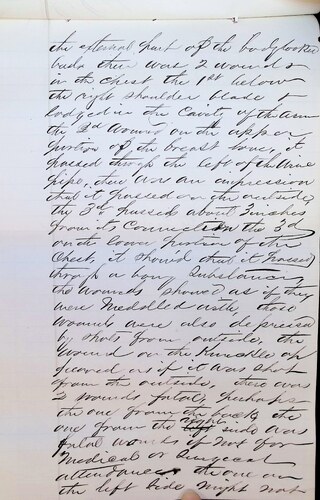 the external part of the body looked
bad there was 2 wounds
in the chest the 1st below
the right shoulder blade &
lodged in the Cavity of the arm
the 2d wound on the upper
portion of the breast bone, it
passed through the left of the wind
pipe, there was an impression
that it passed on the outside,
the 3d passed about 3 inches
from its connection the 3d
on the lower portion of the
Chest, it showed that it passed
through a bony Substance,
the wounds showed as if they
were meddled with, those
wounds were also depressed
by shots from outside, the
wound on the knuckle ap
peared as if it was shot
from the outside, there was
2 wounds fatal, perhaps
the one from the back, the
one from the right side was
fatal wounds if not for
Medical or Surgical
attendance the one on
the left side might not